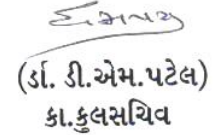 (ર્ડા. ડી.એમ.પટેલ)
કા.કુલસચિવ